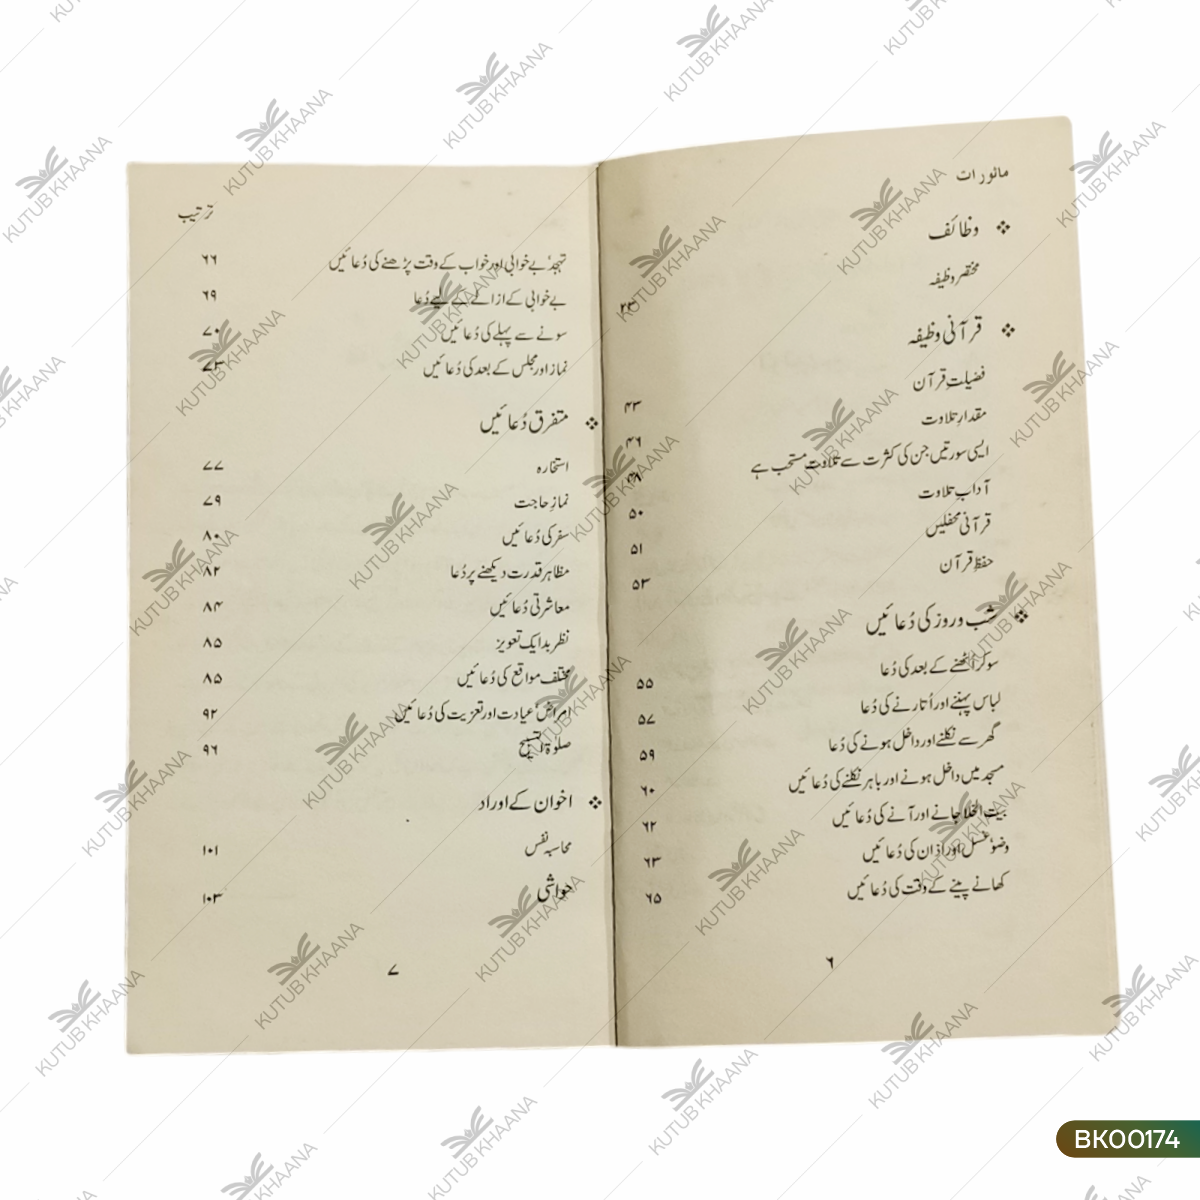 ماثورات
❖ وظائف
مختصر وظیفہ ۲۳
❖ قرآنی وظیفہ
فضیلتِ قرآن ۴۳
مقدارِ تلاوت ۴۶
ایسی سورتیں جن کی کثرت سے تلاوت مستحب ہے ۴۸
آدابِ تلاوت ۵۰
قرآنی محفلیں ۵۱
حفظِ قرآن ۵۳
❖ شب و روز کی دُعائیں
سو کر اُٹھنے کے بعد کی دُعا ۵۵
لباس پہننے اور اُتارنے کی دُعا ۵۷
گھر سے نکلنے اور داخل ہونے کی دُعا ۵۹
مسجد میں داخل ہونے اور باہر نکلنے کی دُعائیں ۶۰
بیت الخلا جانے اور آنے کی دُعائیں ۶۲
وضو، غسل اور اذان کی دُعائیں ۶۳
کھانے پینے کے وقت کی دُعائیں ۶۵
۶
ترتیب
تہجد، بے خوابی اور خواب کے وقت پڑھنے کی دُعائیں ۶۶
بے خوابی کے ازالے کے لیے دُعا ۶۹
سونے سے پہلے کی دُعائیں ۷۰
نماز اور مجلس کے بعد کی دُعائیں ۷۳
❖ متفرق دُعائیں
استخارہ ۷۷
نمازِ حاجت ۷۹
سفر کی دُعائیں ۸۰
مظاہر قدرت دیکھنے پر دُعا ۸۲
معاشرتی دُعائیں ۸۴
نظر بد ایک تعویز ۸۵
مختلف مواقع کی دُعائیں ۸۵
امراض، عیادت اور تعزیت کی دُعائیں ۹۲
صلوٰۃ التسبیح ۹۶
❖ اخوان کے اوراد
محاسبہ نفس ۱۰۱
حواشی ۱۰۳
۷
KUTUB KHAANA
BK00174